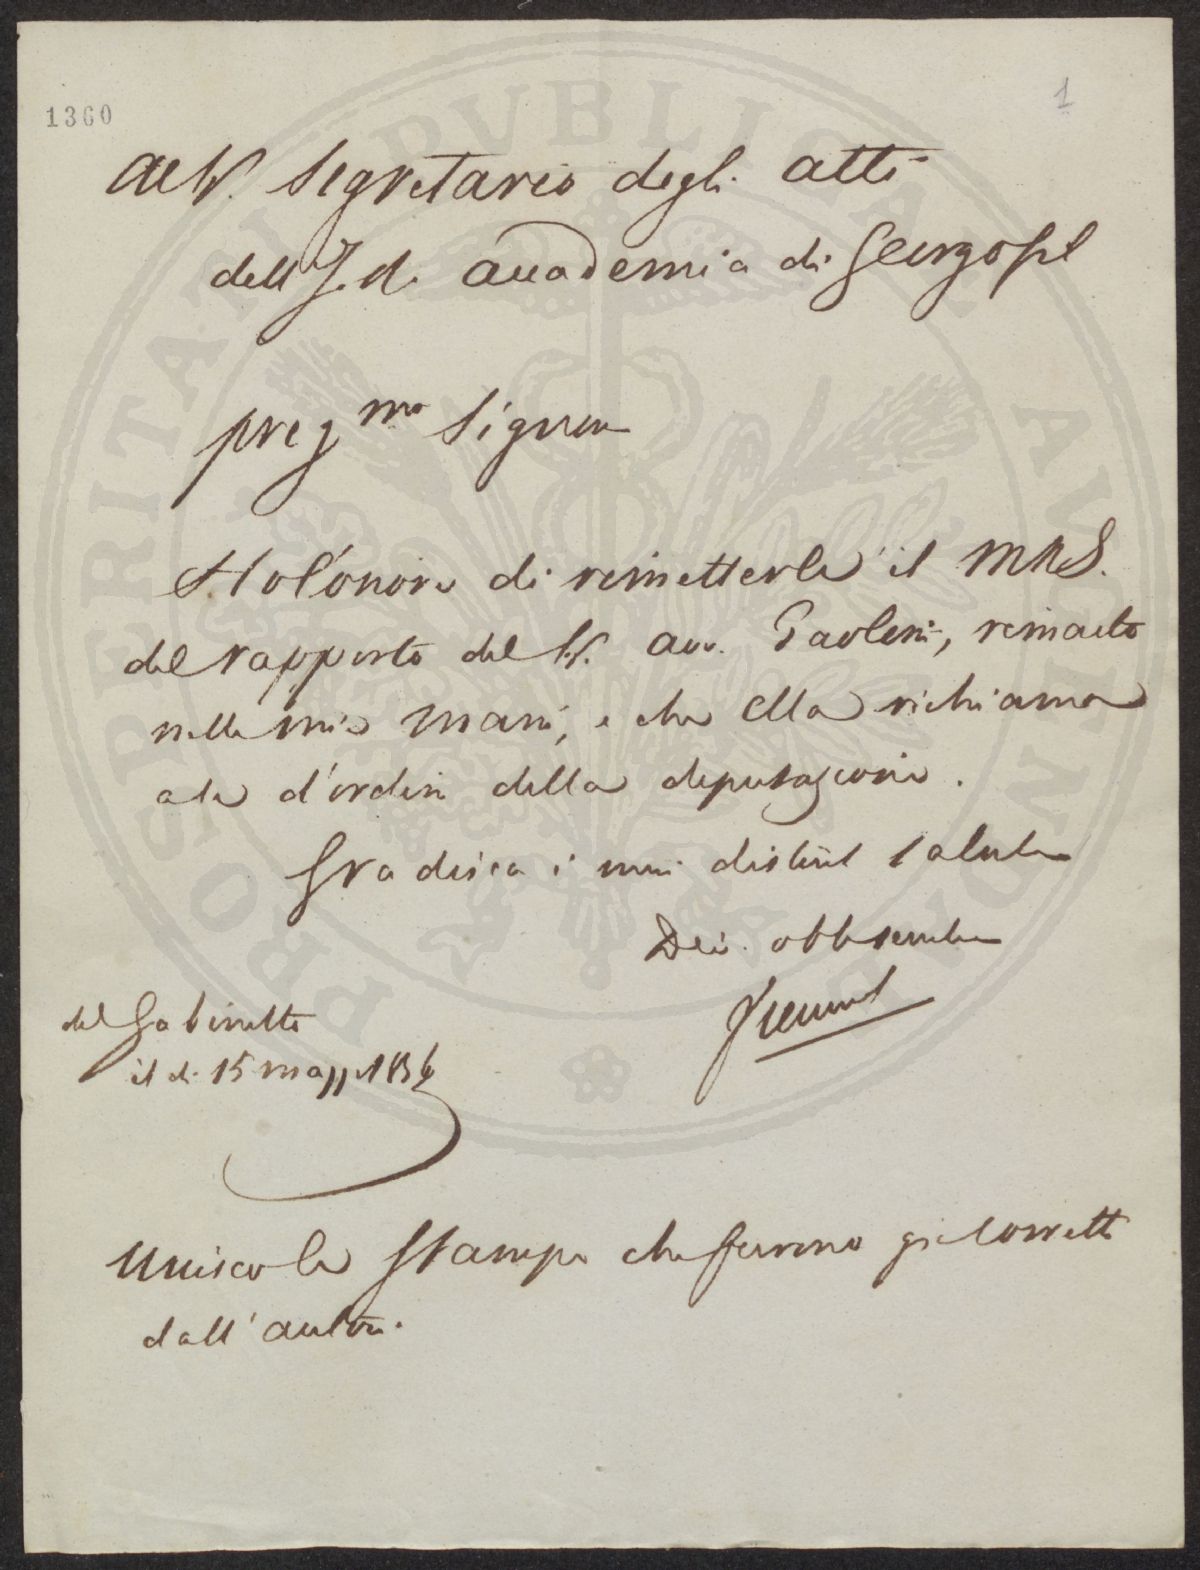 1360
1
Al Sr. Segretario degli atti
dell'I. e R. Accademia di Georgofili
preg.mo Signore
Ho l'onore di rimetterle il MNS.
del rapporto del Sr. avv. Paolini, rimasto
nelle mie mani, e che Ella richiama
d'ordine della deputazione.
Gradisca i miei distinti saluti
Dev. obb. servitore
Vieusseux
del Gabinetto
il di 15 maggio 1834
Unisco le stampe che furono già corrette
dall'autore.
PROSPERITATI PVBLICAE AVGENDAE